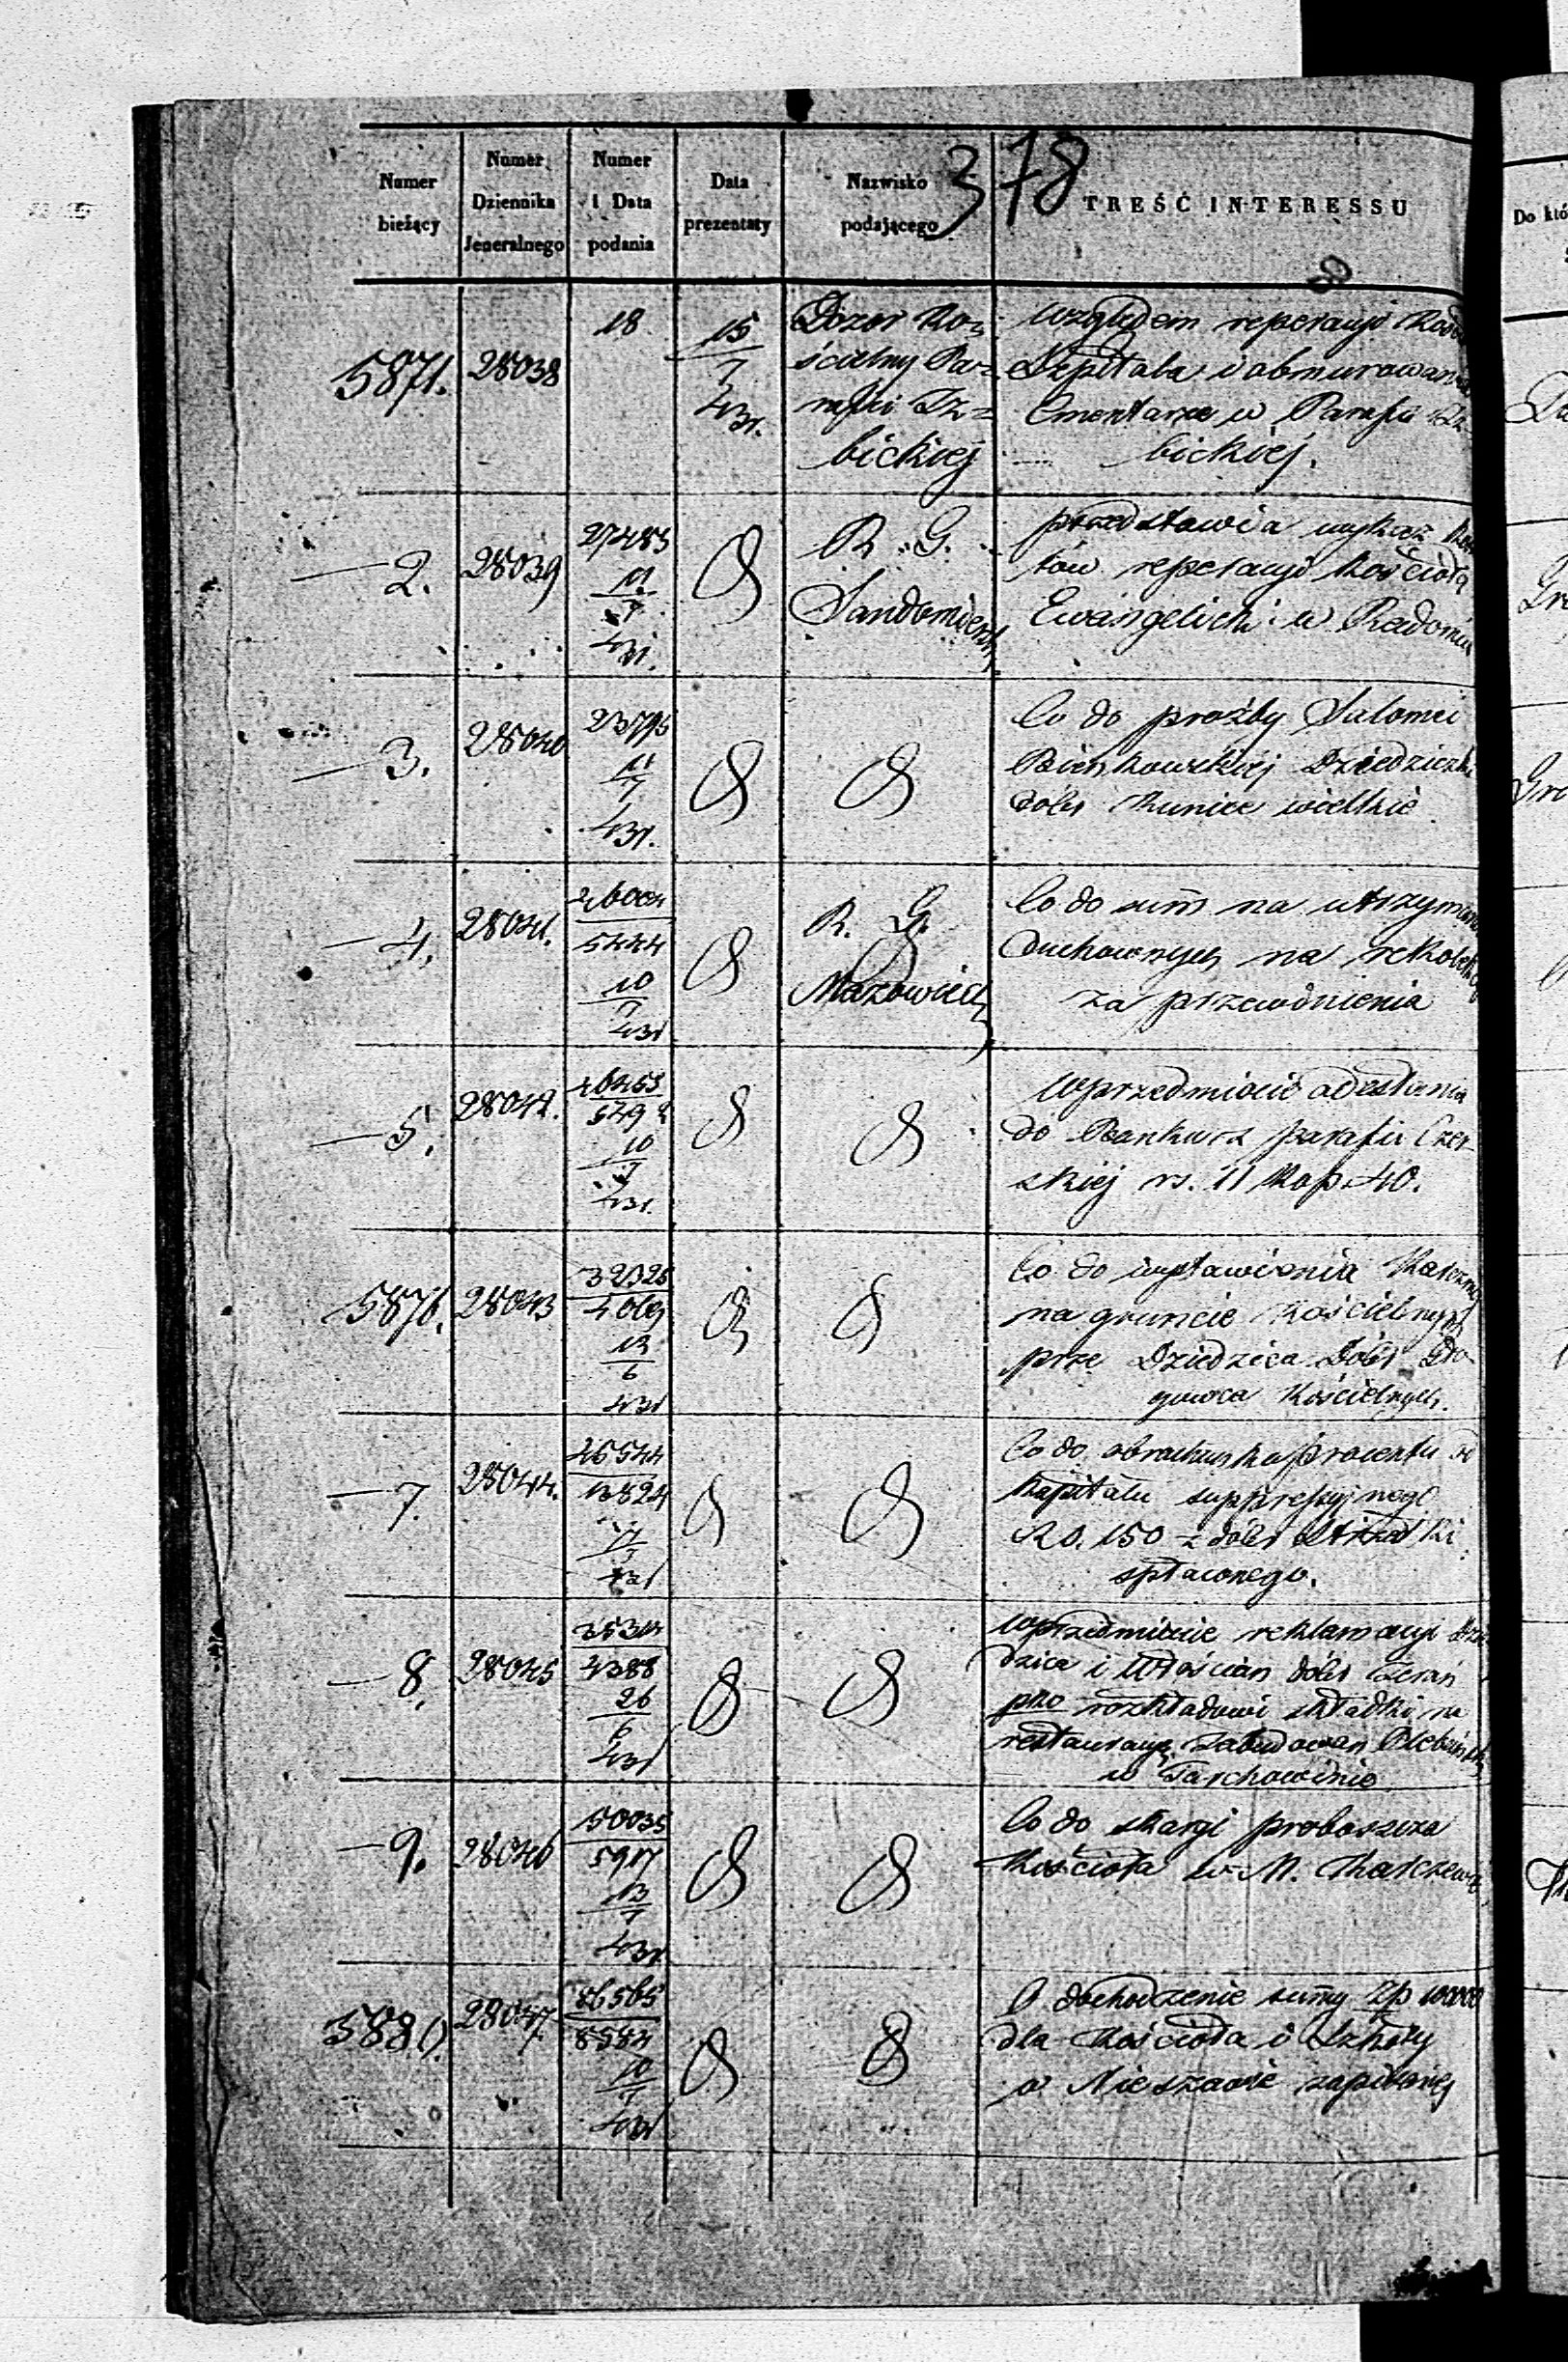 378
Numer bieżący
Numer Dziennika Jeneralnego
Numer i Data podania
Data prezentaty
Nazwisko podającego
TREŚĆ INTERESSU
Do któ
5871. 28038 18 15/7 43r. Dozór Ko=
ścielny Pa=
rafii Iz=
bickiej
względem reperacyi
Szpitala i obmurowan
Cmentarza w Parafii Iz
bickiej.
—2. 28039 27483 11/7 43r. R. G.
Sandomiersk
przedstawia wykaz
tów reperacyi Kościoła
Ewangelicki w Radomiu
—3. 28040 23795 11/7 43r.
Co do prośby Salomei
Bienkowskiej Dziedziczki
dóbr Kunice wielkie
—4. 28041. 5444 10/7 43r R. G.
Mazowieck
Co do sum na utrzyman
duchownych na rekolek
za przewinienia
—5. 28042. 46453 5492 10/7 43r.
w przedmiocie odesłania
do Banku z parafii Czer
skiej rs. 11 Kop. 40.
5876. 28043 32325 4069 13/6 43r
Co do wystawienia Karczmy
na gruncie Kościelnym
prze Dziedzica Dóbr
Kościelnych.
—7. 28044. 46544 13824 43r
Co do obrachunku procentu
Kapitału suppressyjnego
RS. 150 z dóbr
spłaconego.
—8. 28045 4388 26/6 43r
w przedmiocie reklamacyi
dzica i Włościan dóbr Żerań
pko rozkładowi składki na
restauracyę zabudowań Plebańsk
w Tarchominie
—9. 28046 50035 5917 13/7 43r.
Co do skargi proboszcza
Kościoła w M. Karczewie
5880. 28047. 86565 8584 10/7 43r
O dochodzenie summy Zp 10000
dla Kościoła i Szkoły
w Nieszawie zapisanej